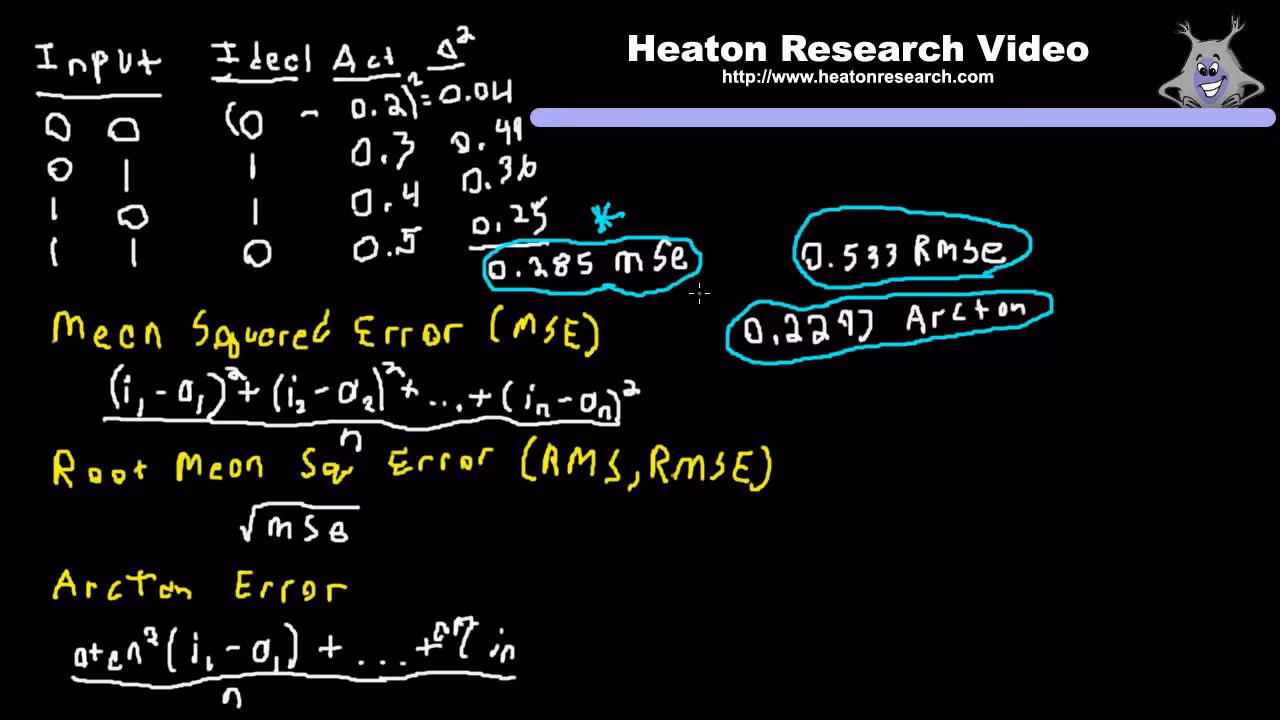 Heaton Research Video
http://www.heatonresearch.com
Input Ideal Act Δ²
0 0 (0 - 0.2)² = 0.04
0 1 1 0.3 0.49
1 0 1 0.4 0.36
1 1 0 0.5 0.25
*
0.285 mse
0.533 Rmse
0.2297 Arctan
Mean Squared Error (MSE)
(i₁ - o₁)² + (i₂ - o₂)² + ... + (iₙ - oₙ)²
n
Root Mean Sq Error (RMS, RMSE)
√mse
Arctan Error
atan²(i₁ - o₁) + ... + iₙ
n